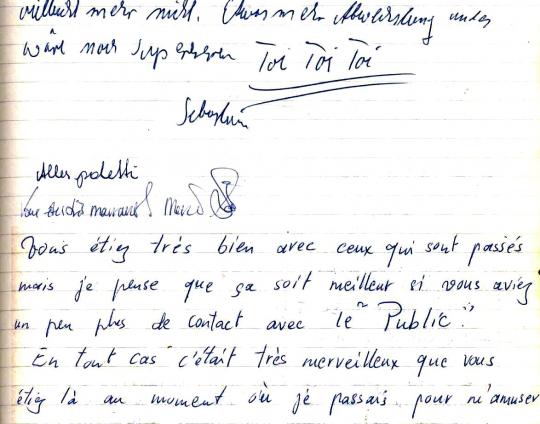 vielleicht mehr nicht. Etwas mehr Abwechslung und es
wär noch supersssssss Toi Toi Toi
Sebastian
Alles paletti
Merci
Vous étiez très bien avec ceux qui sont passés
mais je pense que ça soit meilleur si vous aviez
un peu plus de contact avec "le Public".
En tout cas c'était très merveilleux que vous
étiez là au moment où je passais pour m'amuser